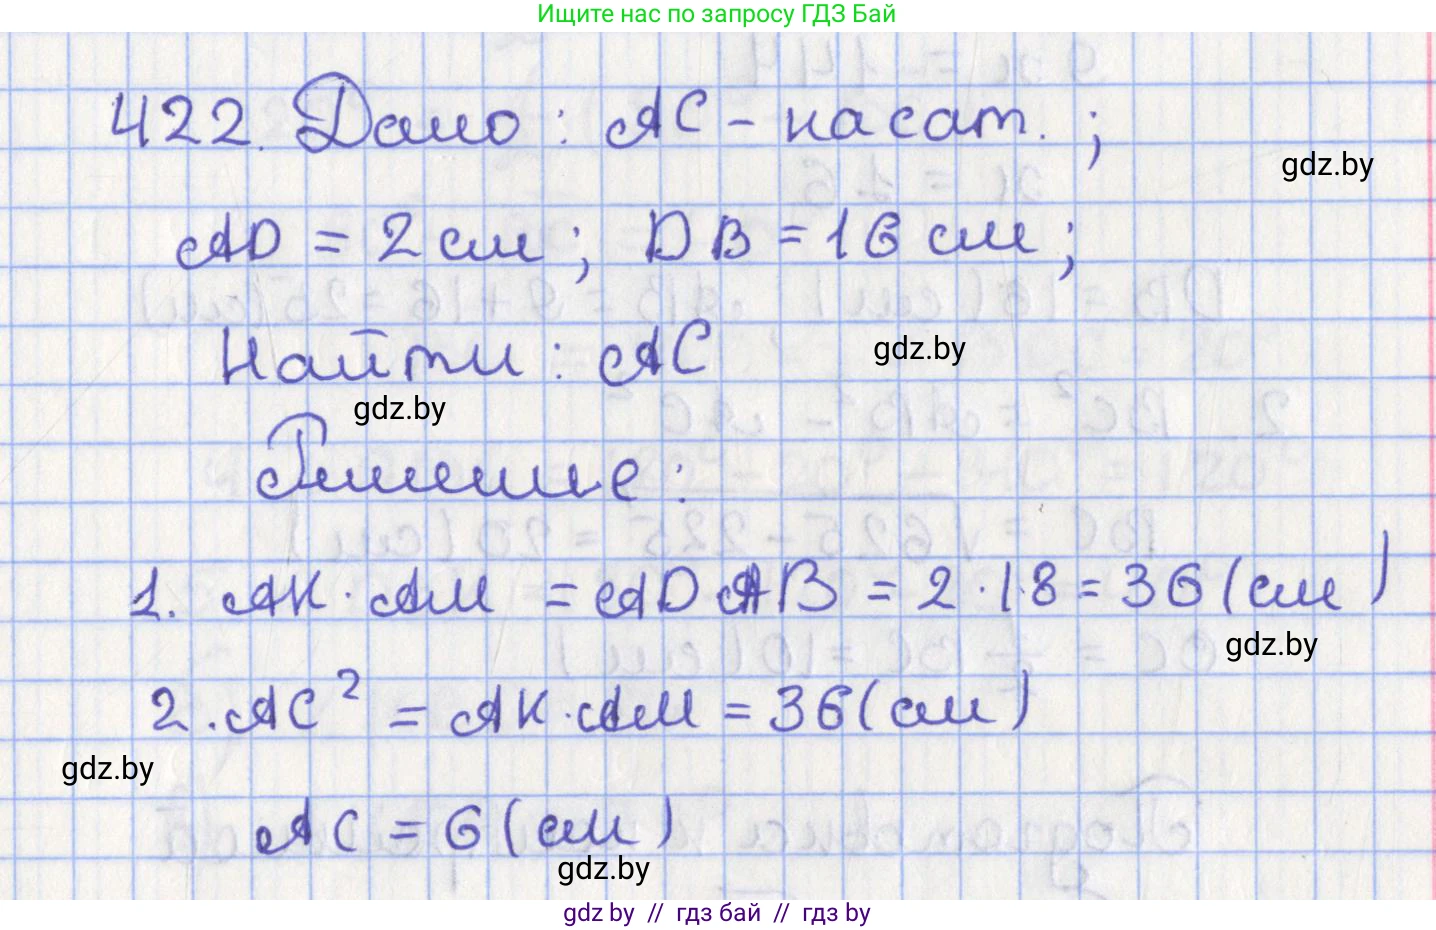 Ищите нас по запросу ГДЗ Бай
422. Дано : AC - касат. ;
gdz.by
AD = 2 см ; DB = 16 см ;
Найти : AC
gdz.by
gdz.by
Решение :
1. AK · AM = AD · AB = 2 · 18 = 36 (см)
gdz.by
2. AC² = AK · AM = 36 (см)
gdz.by
AC = 6 (см)
gdz.by
gdz by // гдз бай // гдз by